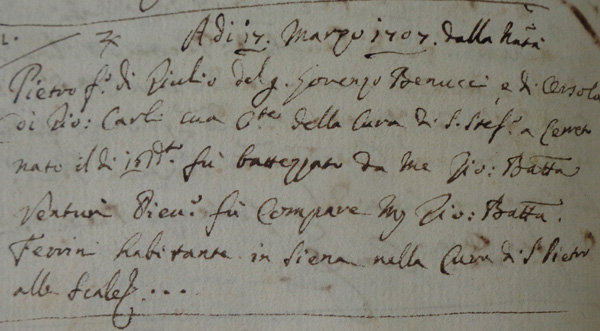 A dì 17. Marzo 1707. dalla Natà
Pietro f.o di Giulio del q. Lorenzo Benucci, e di Orsola
di Gio: Carli sua C.te della Cura di S. Stef.o a Cerret
nato il dì 16 d.to fù battezzato da me Gio: Batta
Venturi Piev.o fù Compare Gio: Batta.
Ferrini habitante in Siena nella Cura di S. Pietro
alle Scale